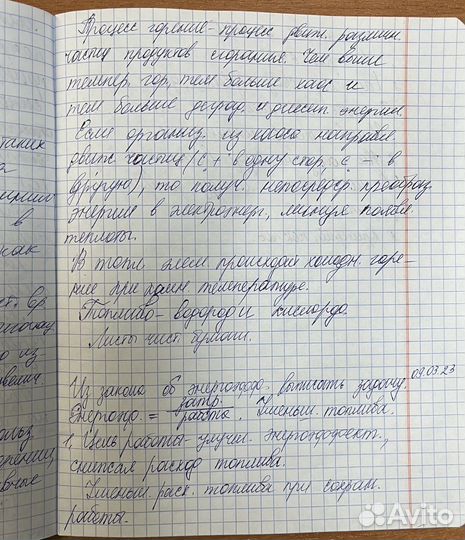 Процесс горения - процесс движ. различн.
частиц продуктов сгорания. Чем выше
темпер. гор, тем больше хаос и
тем больше деград. и диссип. энергии.
Если организ. из хаоса направл.
движ. частиц (с + в одну стор, с - в
другую), то получ. непосредст. преобраз.
энергии в электроэнерг, минуя появл.
теплоты.
В топл. элем происходит холодн. горе-
ние при комн температуре.
Топливо - водород и кислород.
Листы чист. бумаги.
09.03.23
Из закона об энергоэфф. выписать задачу
Энергоэф. = затр. / работа. Уменьш. топлива.
1. Цель работы - улучш. энергоэффект.,
снижая расход топлива.
Уменьш. расх. топлива при сохран.
работы.
таких
в
как
из-
Avito